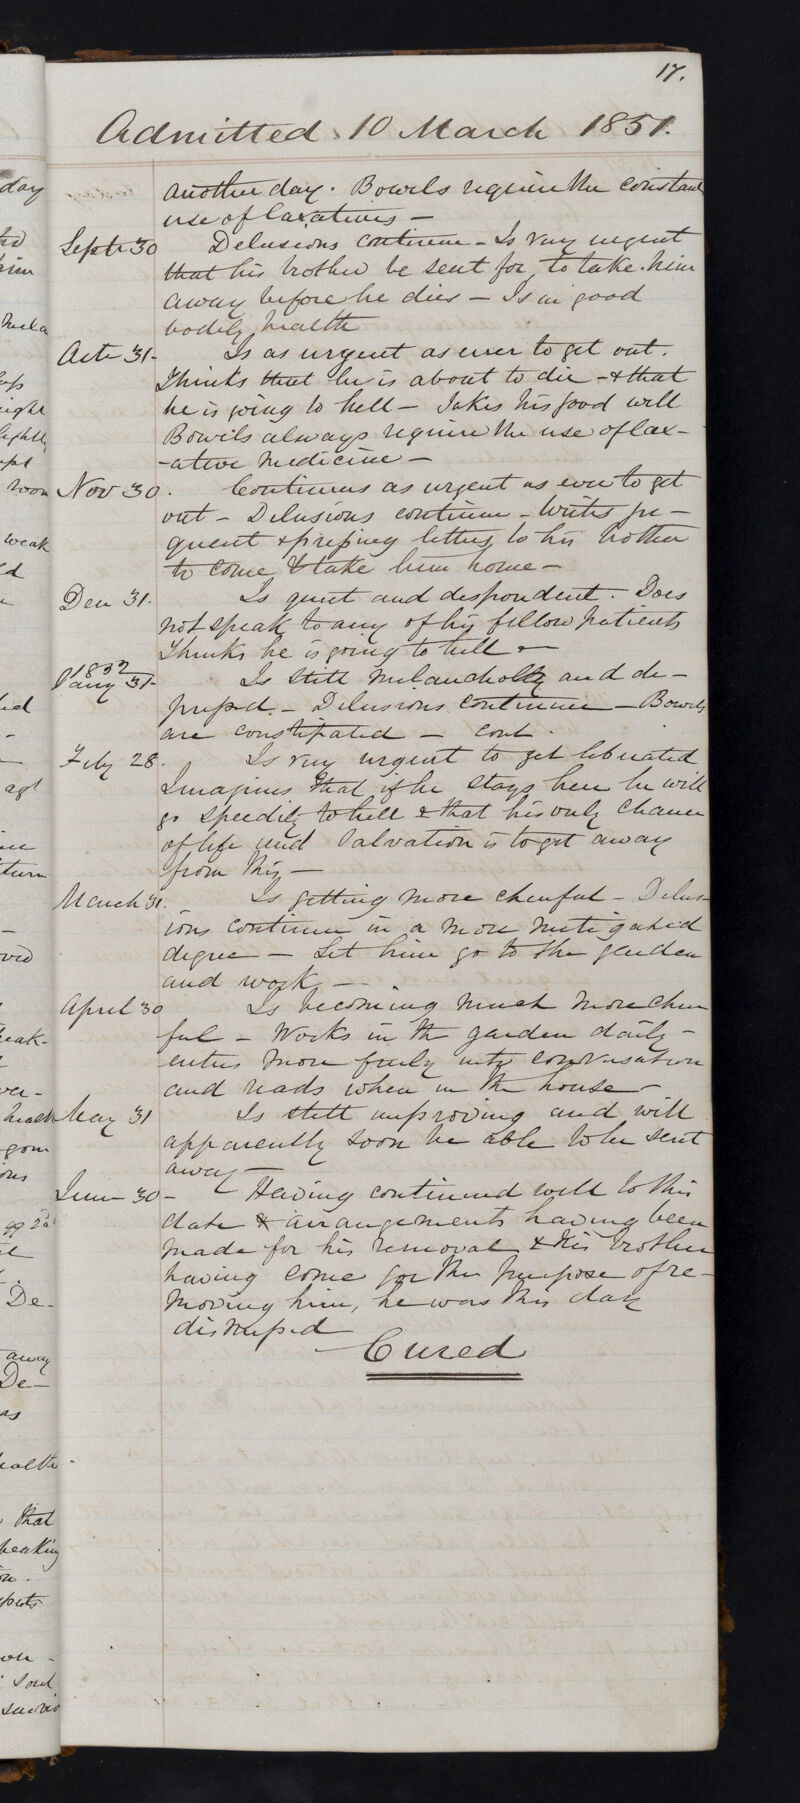 17.
Admitted 10 March 1851.
another day. Bowels require the constant
use of laxatives —
Septr 30 Delusions continue - Is very urgent
that his brother be sent for, to take him
away before he dies — Is in good
bodily health
Octr 31 - Is as urgent as ever to get out.
Thinks that he is about to die - & that
he is going to hell — Takes his food well
Bowels always require the use of lax-
-ative medicine —
Nov 30. Continues as urgent as ever to get
out - Delusions continue - Writes fre-
quent & pressing letters to his brother
to come & take him home —
Decr 31. Is quiet and despondent. Does
not speak to any of his fellow patients
Thinks he is going to hell —
1852
Jany 31 - Is still melancholy and de-
pressed. - Delusions continue — Bowels
are constipated — cont.
Feby 28. Is very urgent to get liberated
Imagines that if he stays here he will
go speedily to hell & that his only chance
of life and Salvation is to get away
from this —
March 31. Is getting more cheerful - Delus-
ions continue in a more mitigated
degree — Let him go to the garden
and work —
April 30 Is becoming much more cheer
ful - Works in the garden daily -
enters more freely into conversation
and reads when in the house —
May 31 Is still improving and will
apparently soon be able to be sent
away —
June 30 - Having continued well to this
date & arrangements having been
made for his removal & his brother
having come for the purpose of re-
moving him, he was this day
dismissed
Cured